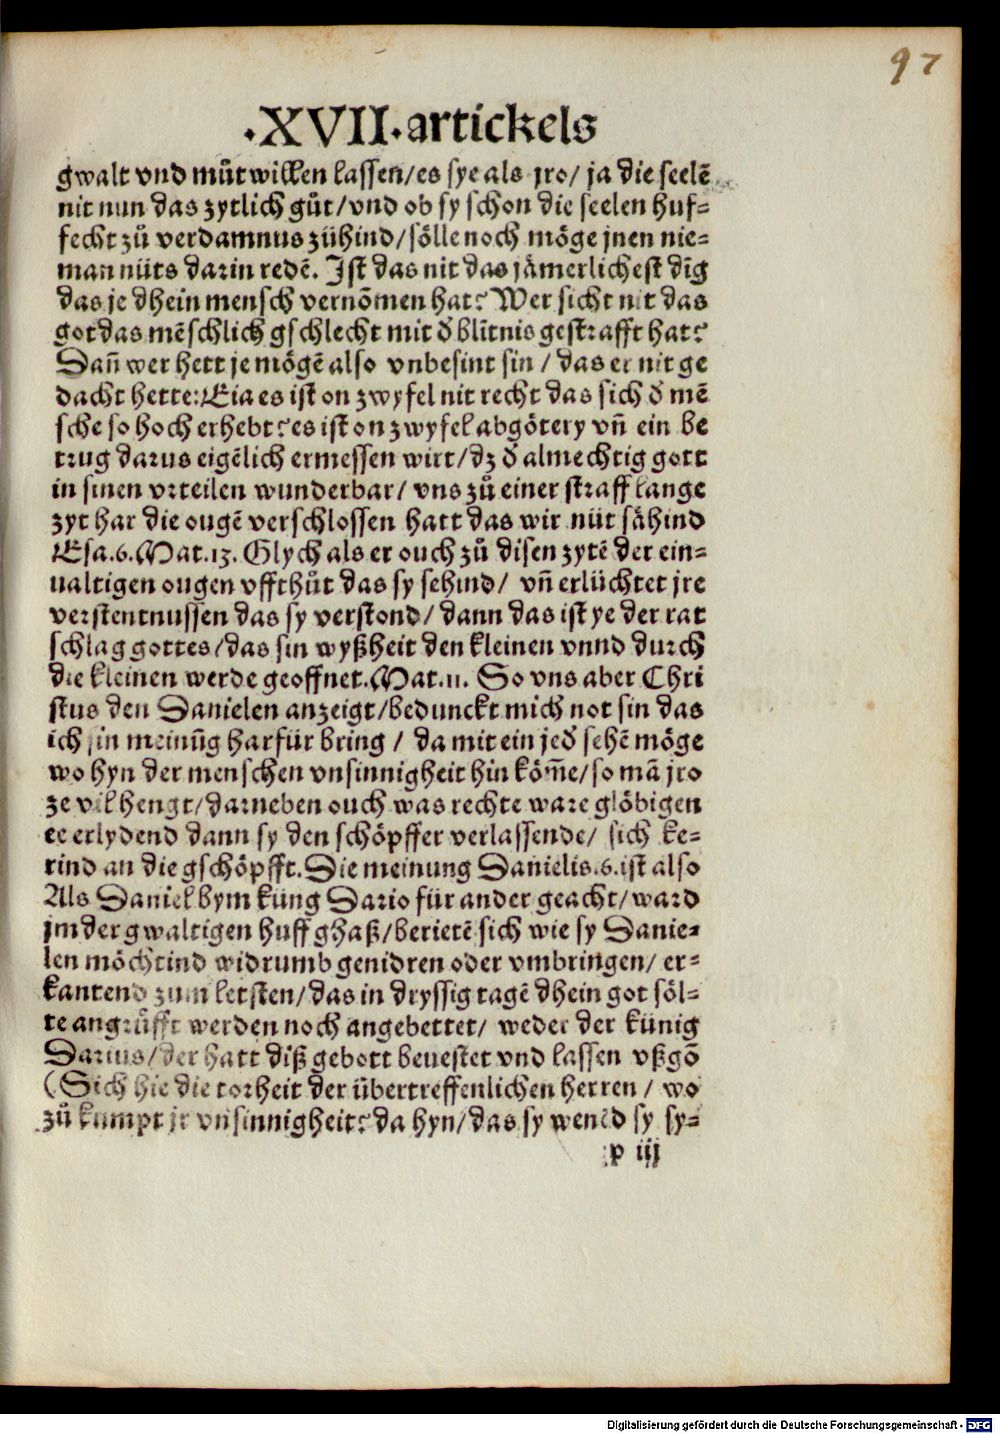 97
·XVII·artickels
gwalt vnd můtwillen lassen/es sye als jro/ ja die seelē
nit nun das zytlich gůt/vnd ob sy schon die seelen huf-
fecht zů verdamnus zühind/sölle noch möge jnen nie-
man nüts darin redē. Ist das nit das jämerlichest dīg
das je dhein mensch vernōmen hat? Wer sicht nit das
got das mēschlich gschlecht mit d̉ blītnis gestrafft hat?
Dañ wer hett je mögē also vnbesint sin / das er nit ge
dacht hette: Eia es ist on zwyfel nit recht das sich d̉ mē
sche so hoch erhebt? es ist on zwyfel abgötery vñ ein be
trug darus eigēlich ermessen wirt/dz d̉ almechtig gott
in sinen vrteilen wunderbar/ vns zů einer straff lange
zyt har die ougē verschlossen hatt das wir nüt sähind
Esa.6.Mat.13. Glych als er ouch zů disen zytē der ein-
ualtigen ougen vffthůt das sy sehind/ vñ erlüchtet jre
verstentnussen das sy verstond/ dann das ist ye der rat
schlag gottes/das sin wyßheit den kleinen vnnd durch
die kleinen werde geoffnet.Mat.11. So vns aber Chri
stus den Danielen anzeigt/bedunckt mich not sin das
ich sin meinūg harfür bring / da mit ein jed̉ sehē möge
wo hyn der menschen vnsinnigheit hin köm̄e/so mā jro
ze vil hengt/darneben ouch was rechte ware glöbigen
ee erlydend dann sy den schöpffer verlassende/ sich ke-
rind an die gschöpfft.Die meinung Danielis.6.ist also
Als Daniel bym küng Dario für ander geacht/ward
jm der gwaltigen huff ghaß/berietē sich wie sy Danie-
len möchtind widrumb genidren oder vmbringen/ er-
kantend zum letsten/das in dryssig tagē dhein got söl-
te angrůfft werden noch angebettet/ weder der künig
Darius/der hatt diß gebott beuestet vnd lassen vßgō
(Sich hie die torheit der übertreffenlichen herren / wo
zů kumpt jr vnsinnigheit? da hyn/das sy wenēd sy sy-
p iij
Digitalisierung gefördert durch die Deutsche Forschungsgemeinschaft - DFG